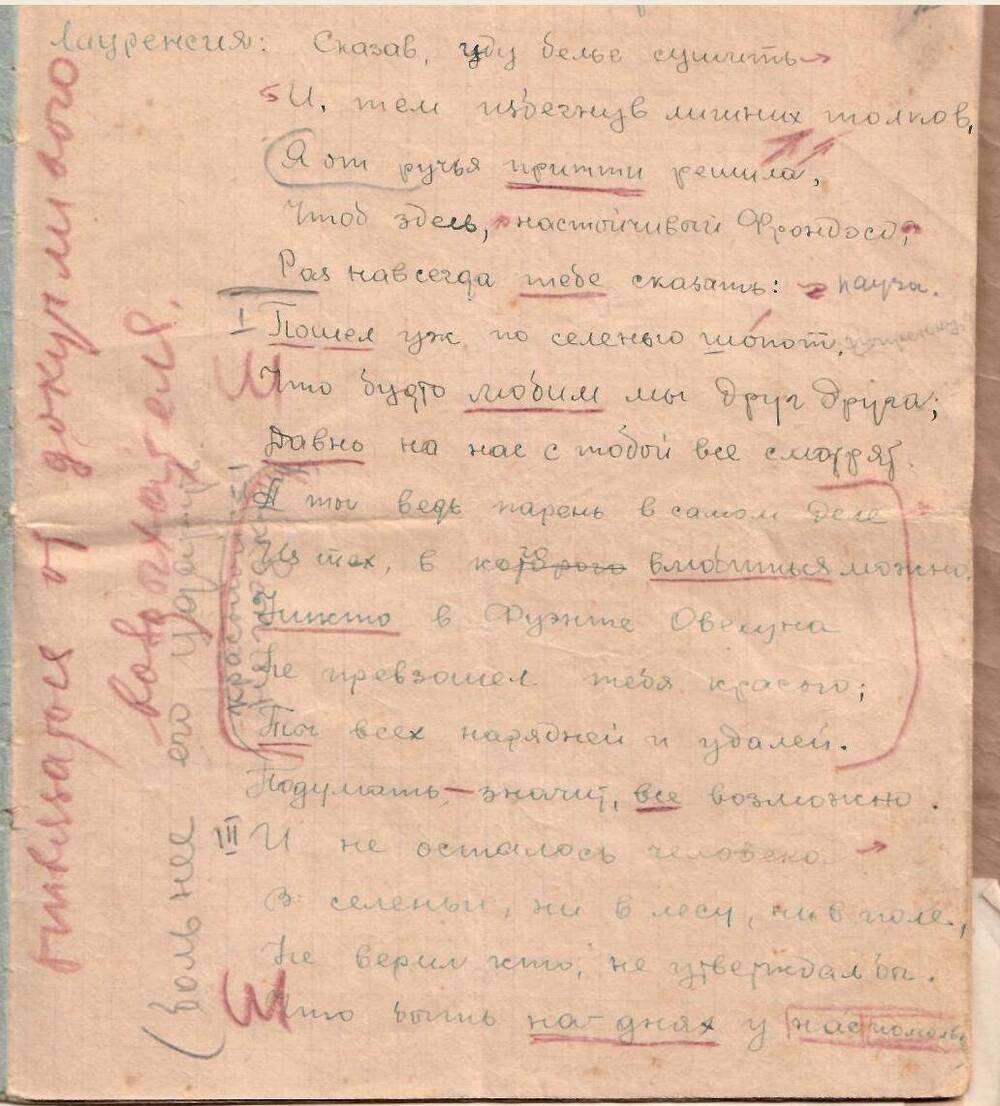 Лауренсия: Сказав, иду белье сушить
И, тем избегнув лишних толков,
Я от ручья притти решила,
Чтоб здесь, настойчивый Фрондосо,
Раз навсегда тебе сказать: пауза.
I Пошел уж по селенью шопот,
Что будто любим мы друг друга;
Давно на нас с тобой все смотрят.
II А ты ведь парень в самом деле
Из тех, в кого влюбиться можно.
Никто в Фуэнте Овехуна
Не превзошел тебя красою;
Ты всех нарядней и удалей.
Подумать – значит, все возможно.
III И не осталось человека
В селеньи, ни в лесу, ни в поле,
Не верил кто, не утверждал бы.
Что быть на-днях у нас помолвке
отвязаться от докучливого
воздыхателя.
(больнее его ударить
красотой